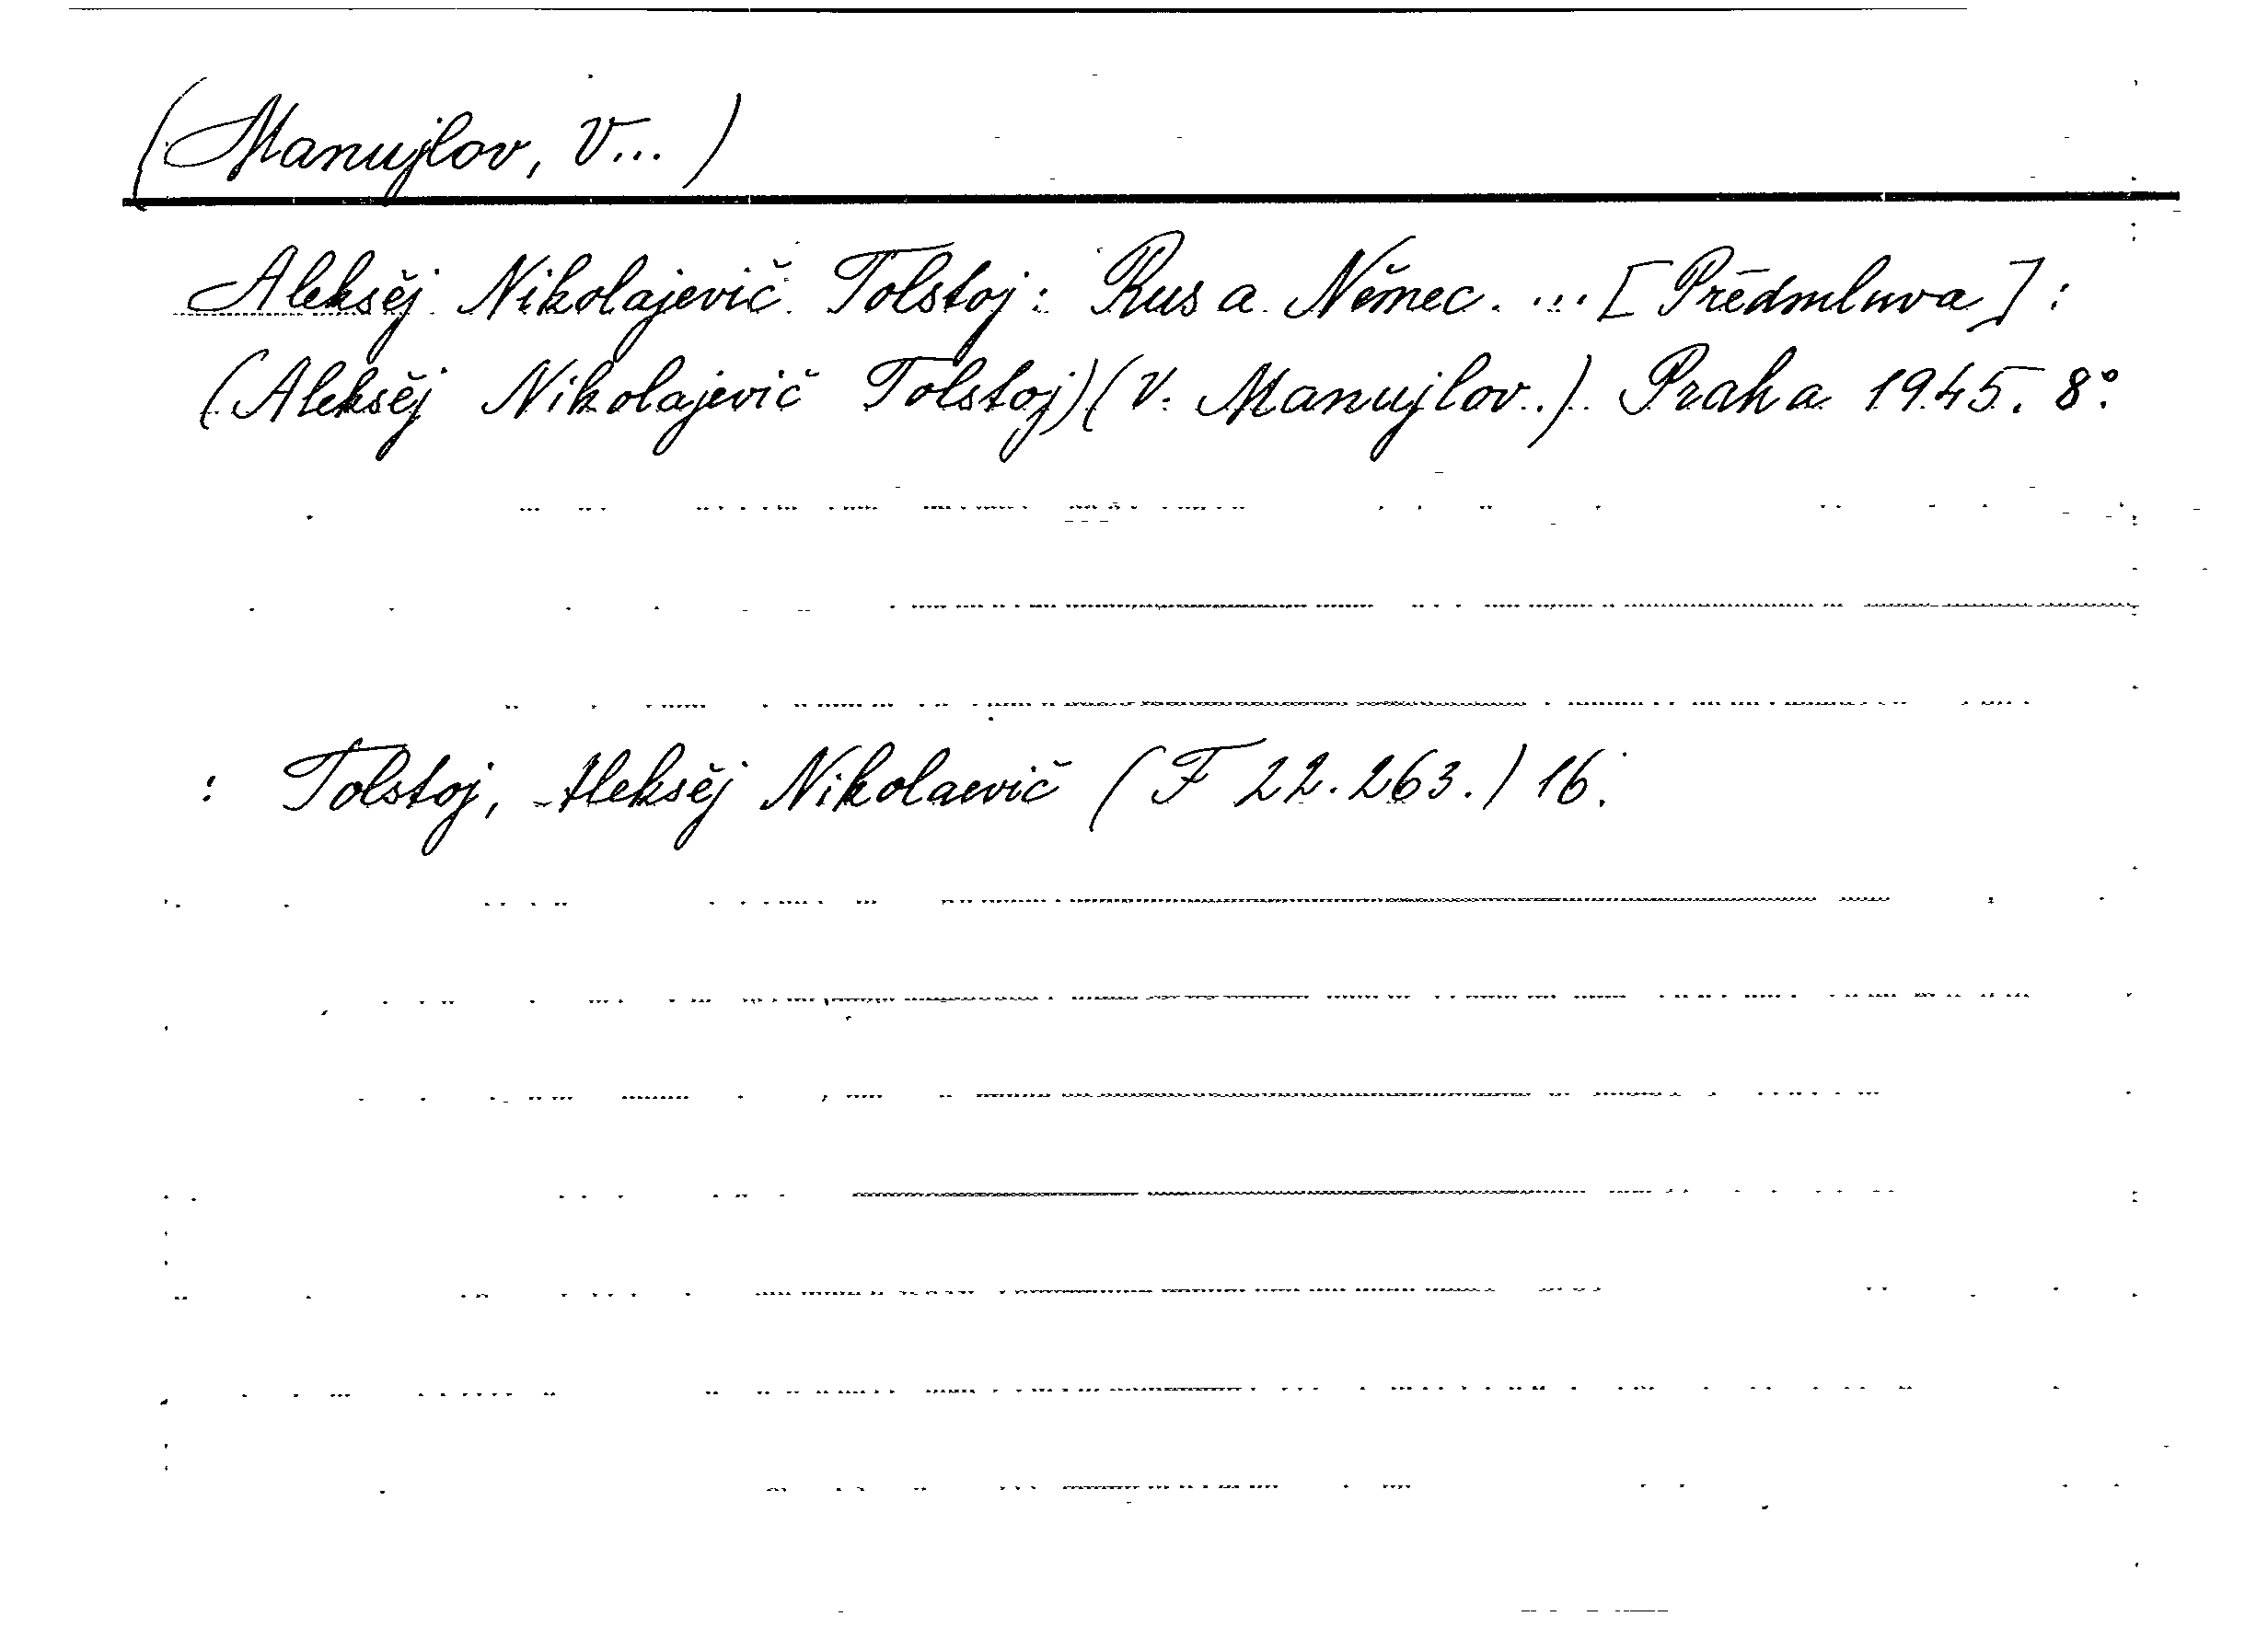 (Manujlov, V...)
Aleksěj Nikolajevič Tolstoj: Rus a Němec. ... [Předmluva]:
(Aleksěj Nikolajevič Tolstoj)(V. Manujlov.). Praha 1945. 8°.
: Tolstoj, Aleksěj Nikolaevič (F 22.263.) 16.